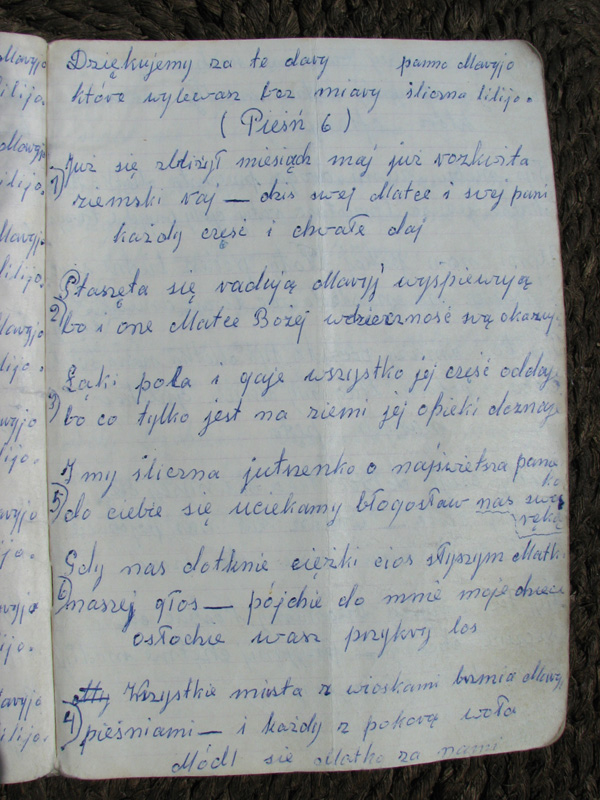 Dziękujemy za te dary panno Maryjo
które wylewasz bez miary śliczna lilijo.
( Pieśń 6 )
1) Już się zbliżył miesiądz maj już rozkwita
ziemski raj — dziś swej Matce i swej pani
każdy cześć i chwałe daj
Ptaszęta się radują Maryj wyśpiewują
2) bo i one Matce Bożej wdzieczność swą okazuj
Łąki pola i gaje wszystko jej cześć oddaje
3) bo co tylko jest na ziemi jej opieki doznaje
I my śliczna jutszenko o najświetsza panie
5) do ciebie się uciekamy błogosław nas swą
ręką
Gdy nas dotknie ciężki cios słyszym Matki
6) naszej głos — pójdzie do mnie moje dzieci
osłodzie wasz przykry los
Wszystkie miasta z wioskami brzmia Maryj
4) pieśniami — i każdy z pokorą woła
Módl sie Matko za nami
Maryjo
lilijo.
Maryjo
lilijo.
Maryjo
lilijo.